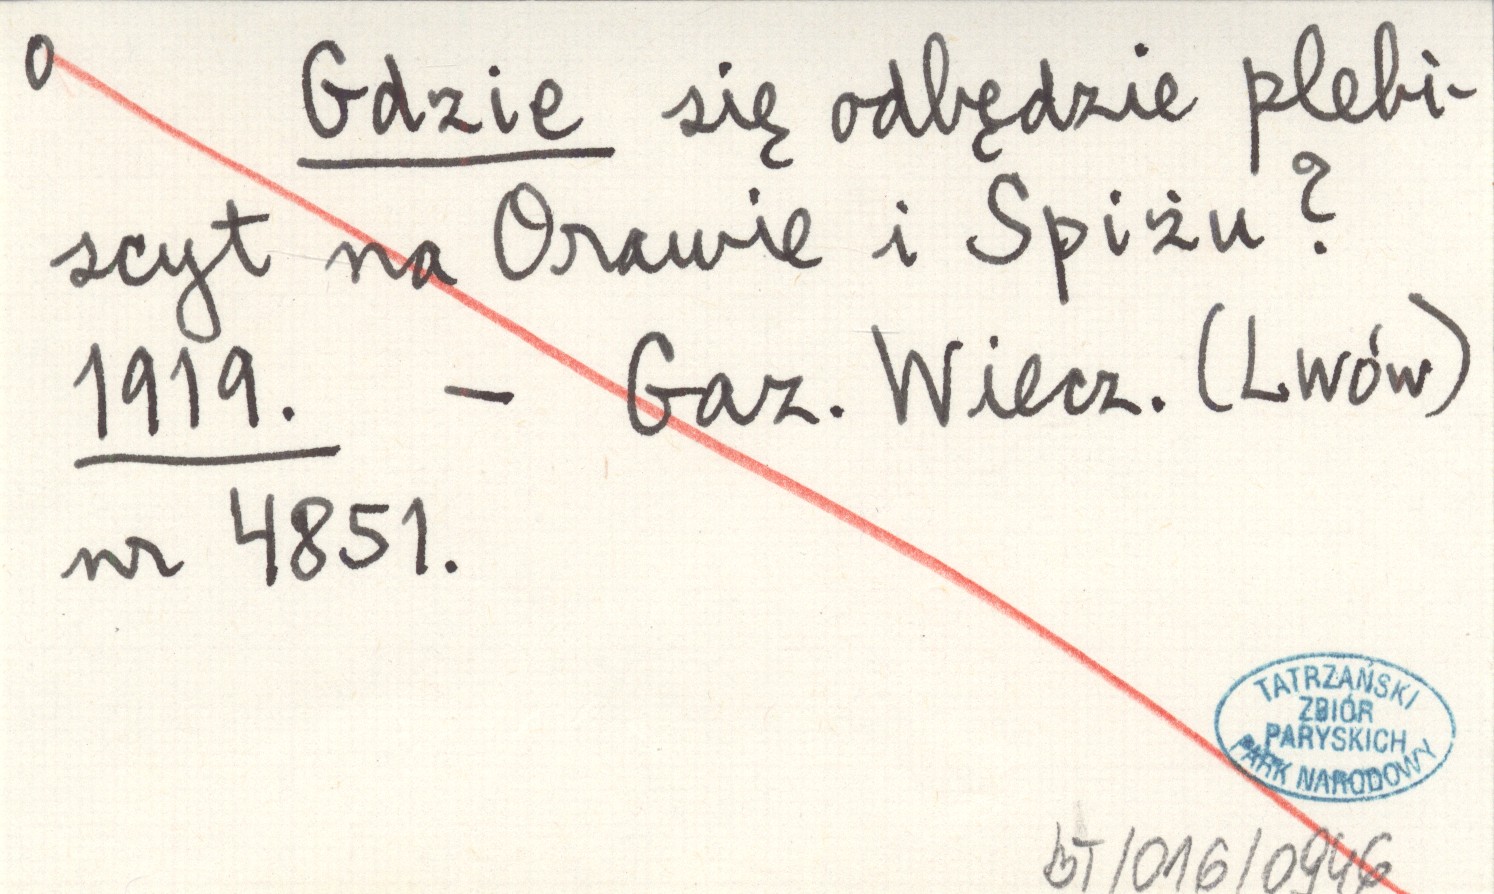 0 Gdzie się odbędzie plebi-
scyt na Orawie i Spiżu?
1919. – Gaz. Wiecz. (Lwów)
nr 4851.
TATRZAŃSKI
ZBIÓR
PARYSKICH
PARK NARODOWY
BT/016/0946